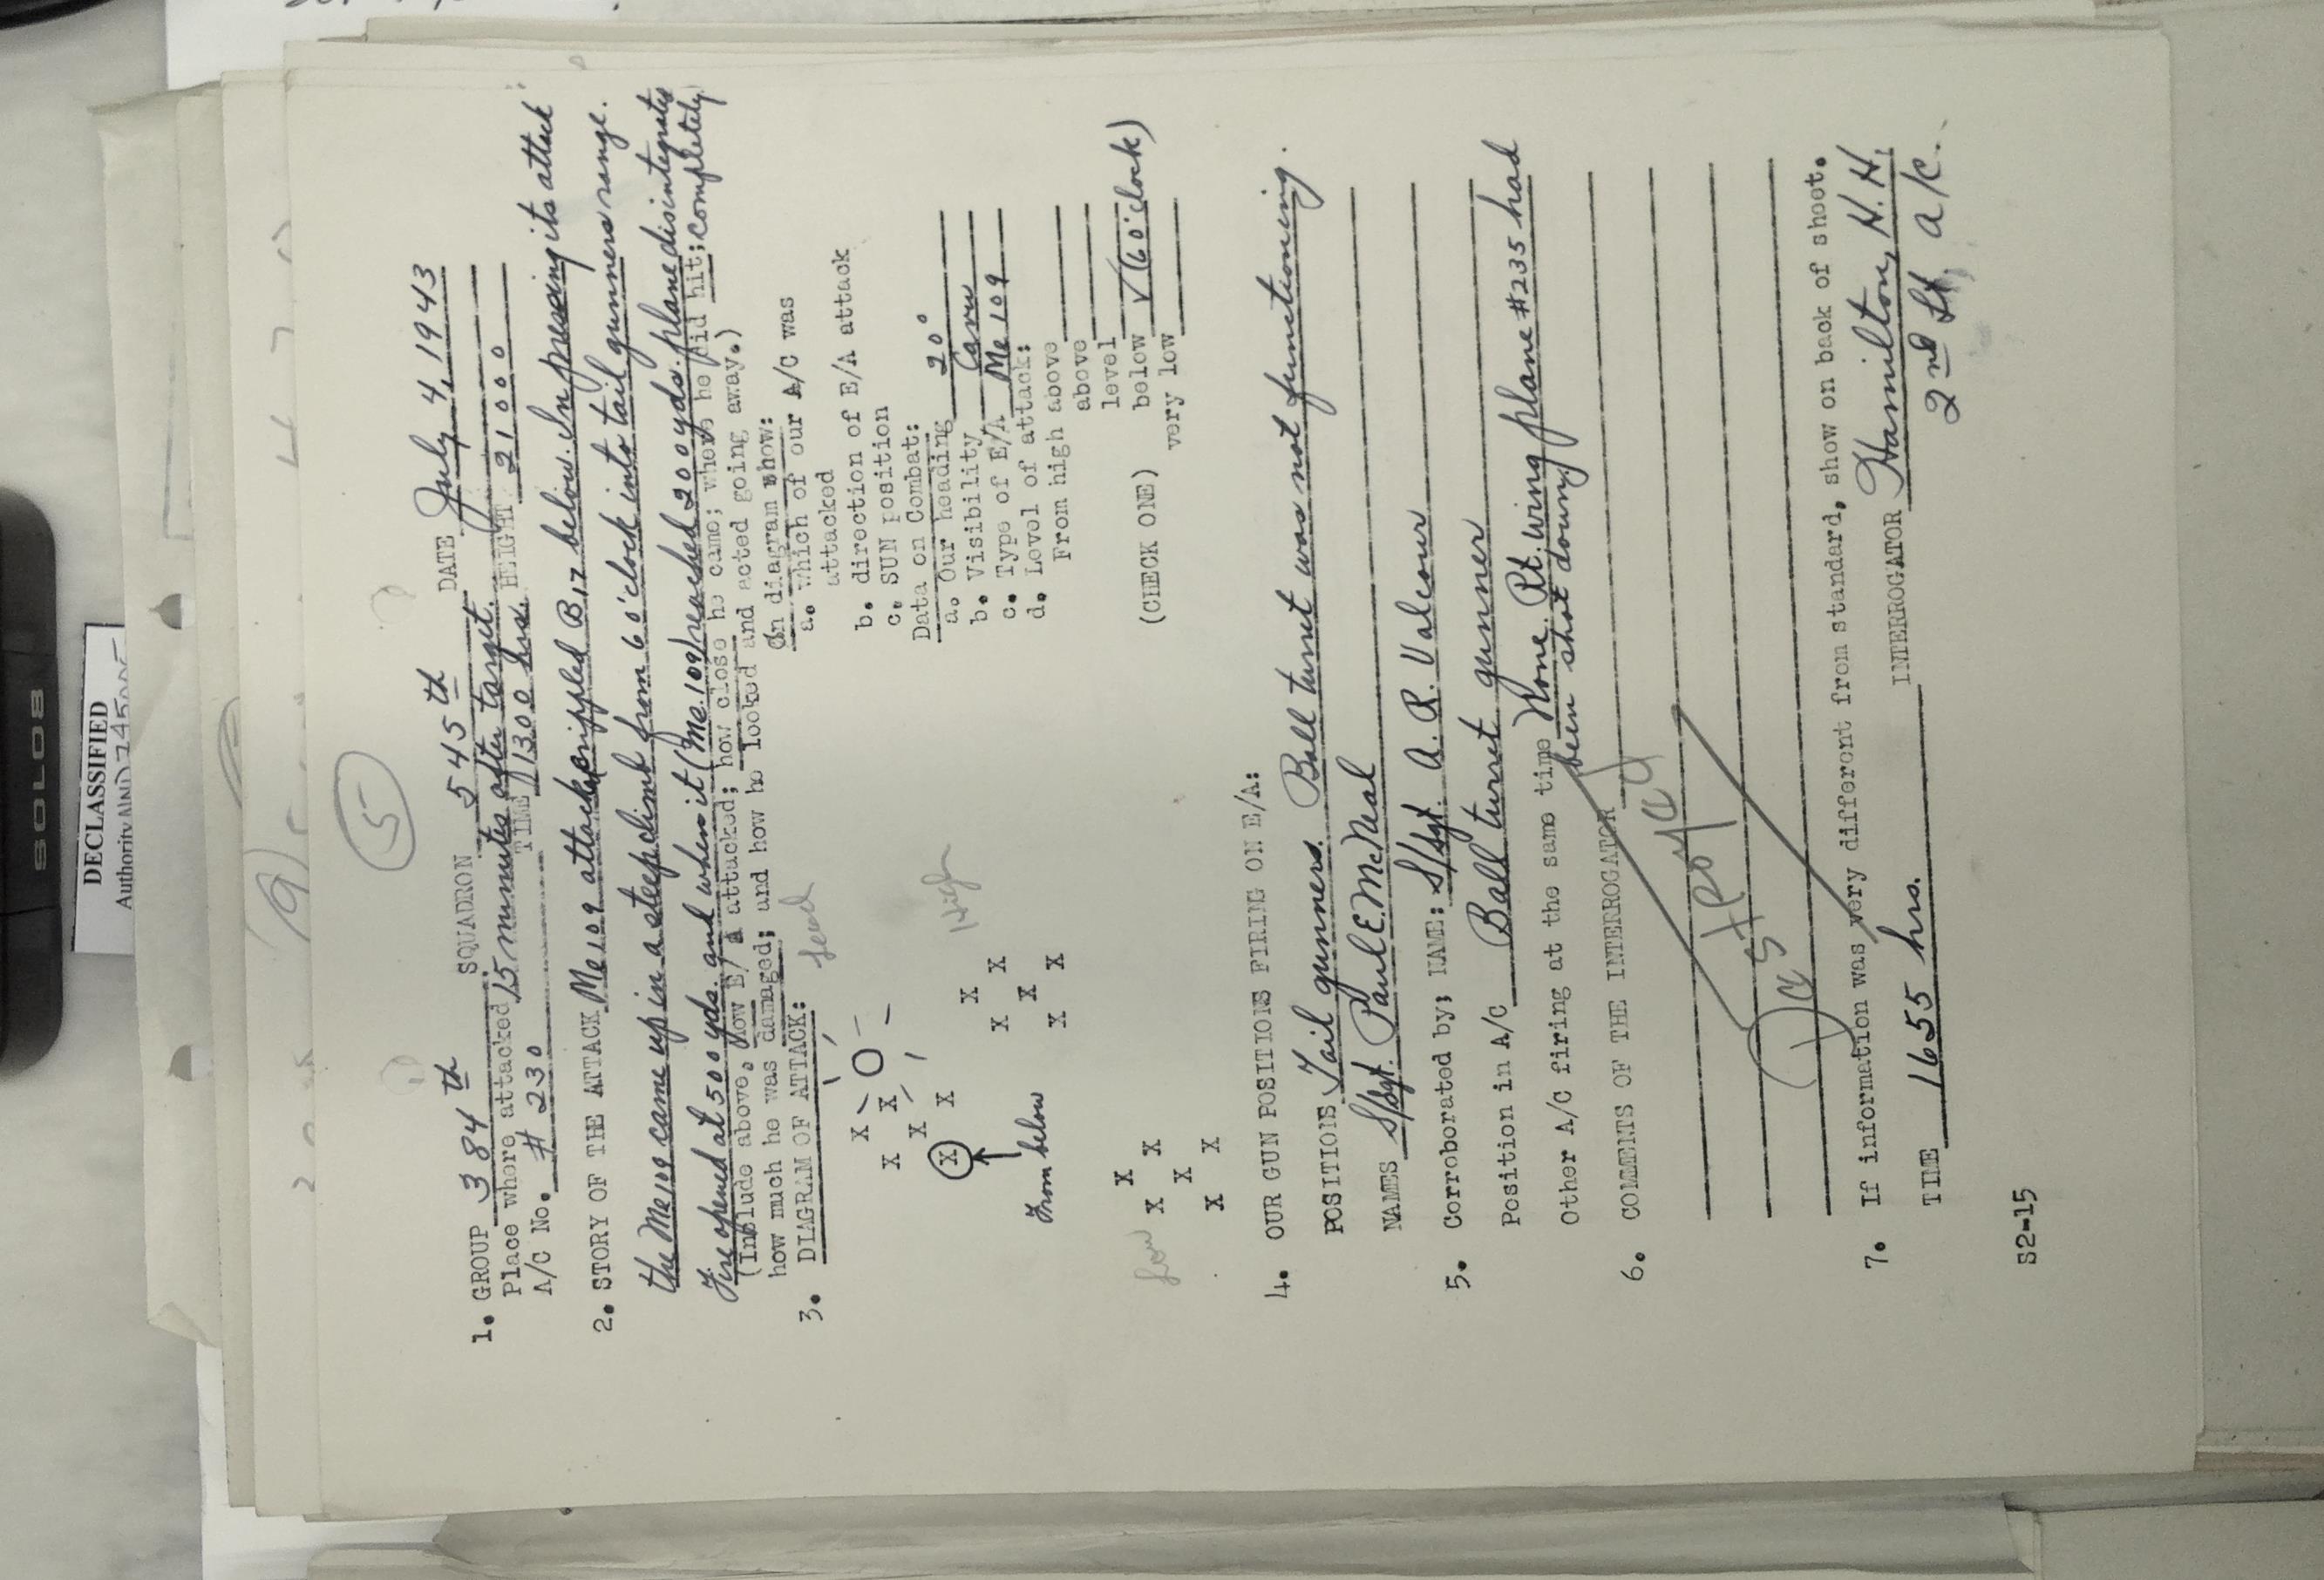 SOLO8
DECLASSIFIED
Authority NND 745005
5
1. GROUP 384th SQUADRON 545th DATE July 4, 1943
Place where attacked 15 minutes after target. HEIGHT 21000
A/C No. # 230 TIME 1300 hrs.
2. STORY OF THE ATTACK Me 109 attacked crippled B17 below. In pressing its attack
the Me 109 came up in a steep climb from 6 o'clock into tail gunners range.
Fire opened at 500 yds. and when it (Me.109) reached 200 yds. plane disintegrated
completely
(Include above, how E/A attacked; how close he came; where he did hit;
how much he was damaged; and how he looked and acted going away.)
3. DIAGRAM OF ATTACK:
On diagram show:
a. which of our A/C was
attacked
b. direction of E/A attack
c. SUN position
Data on Combat:
a. Our heading 20°
b. Visibility Cavu
c. Type of E/A Me 109
d. Level of attack:
From high above
above
level
below √ (6 o'clock)
very low
(CHECK ONE)
lead
X X X X X X
O
High
X X X X X X
From below
low
X X X X X X
4. OUR GUN POSITIONS FIRING ON E/A:
POSITIONS Tail gunners. Ball turret was not functioning.
NAMES S/Sgt. Paul E. McNeal
5. Corroborated by; NAME: S/Sgt. A. R. Valcour
Position in A/C Ball turret gunner
Other A/C firing at the same time None. Rt. wing plane #235 had
been shot down
6. COMMENTS OF THE INTERROGATOR
Destroyed
7. If information was very different from standard, show on back of sheet.
TIME 1655 hrs. INTERROGATOR Hamilton, H.H.
2nd Lt, a.c.
S2-15